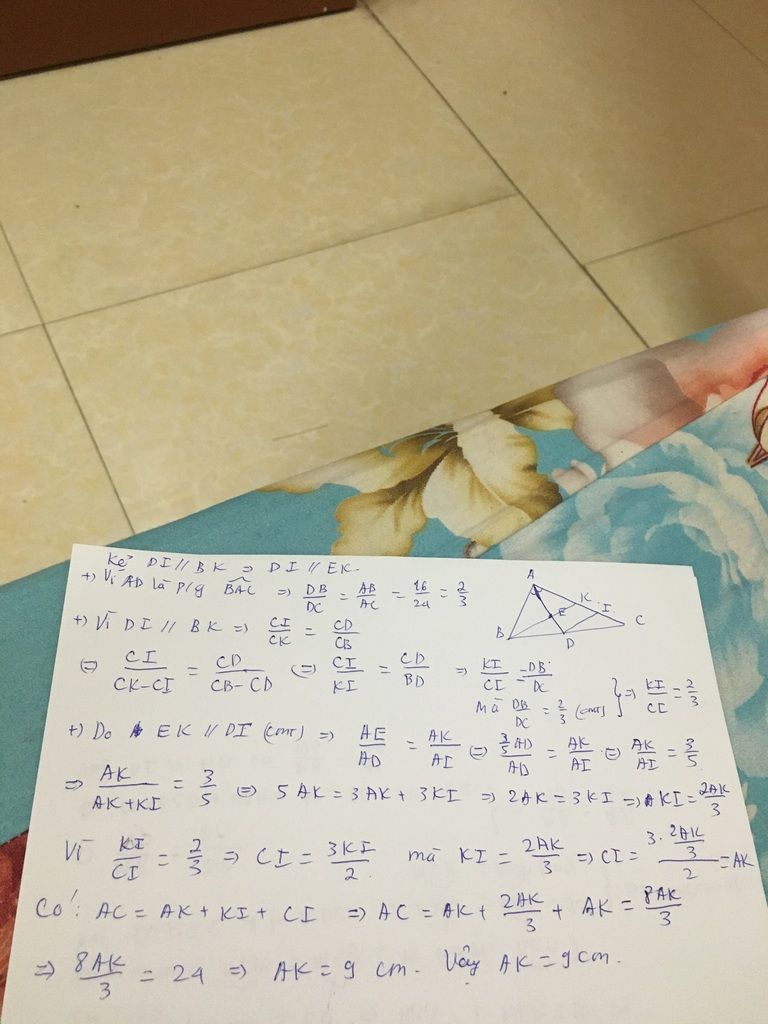 Kẻ DI // BK ⇒ DI // EK.
+) Vì AD là p/g BAC ⇒ DB/DC = AB/AC = 16/24 = 2/3
+) Vì DI // BK ⇒ CI/CK = CD/CB
⇔ CI/(CK-CI) = CD/(CB-CD) ⇔ CI/KI = CD/BD ⇒ KI/CI = DB/DC
Mà DB/DC = 2/3 (cmt) } ⇒ KI/CI = 2/3
+) Do EK // DI (cmt) ⇒ AE/AD = AK/AI ⇔ (3/5 AD)/AD = AK/AI ⇔ AK/AI = 3/5
⇒ AK/(AK+KI) = 3/5 ⇔ 5AK = 3AK + 3KI ⇒ 2AK = 3KI ⇒ KI = 2AK/3
Vì KI/CI = 2/3 ⇒ CI = 3KI/2 mà KI = 2AK/3 ⇒ CI = (3·2AK/3)/2 = AK
Có: AC = AK + KI + CI ⇒ AC = AK + 2AK/3 + AK = 8AK/3
⇒ 8AK/3 = 24 ⇒ AK = 9 cm. Vậy AK = 9cm.
A
K
I
E
C
B
D